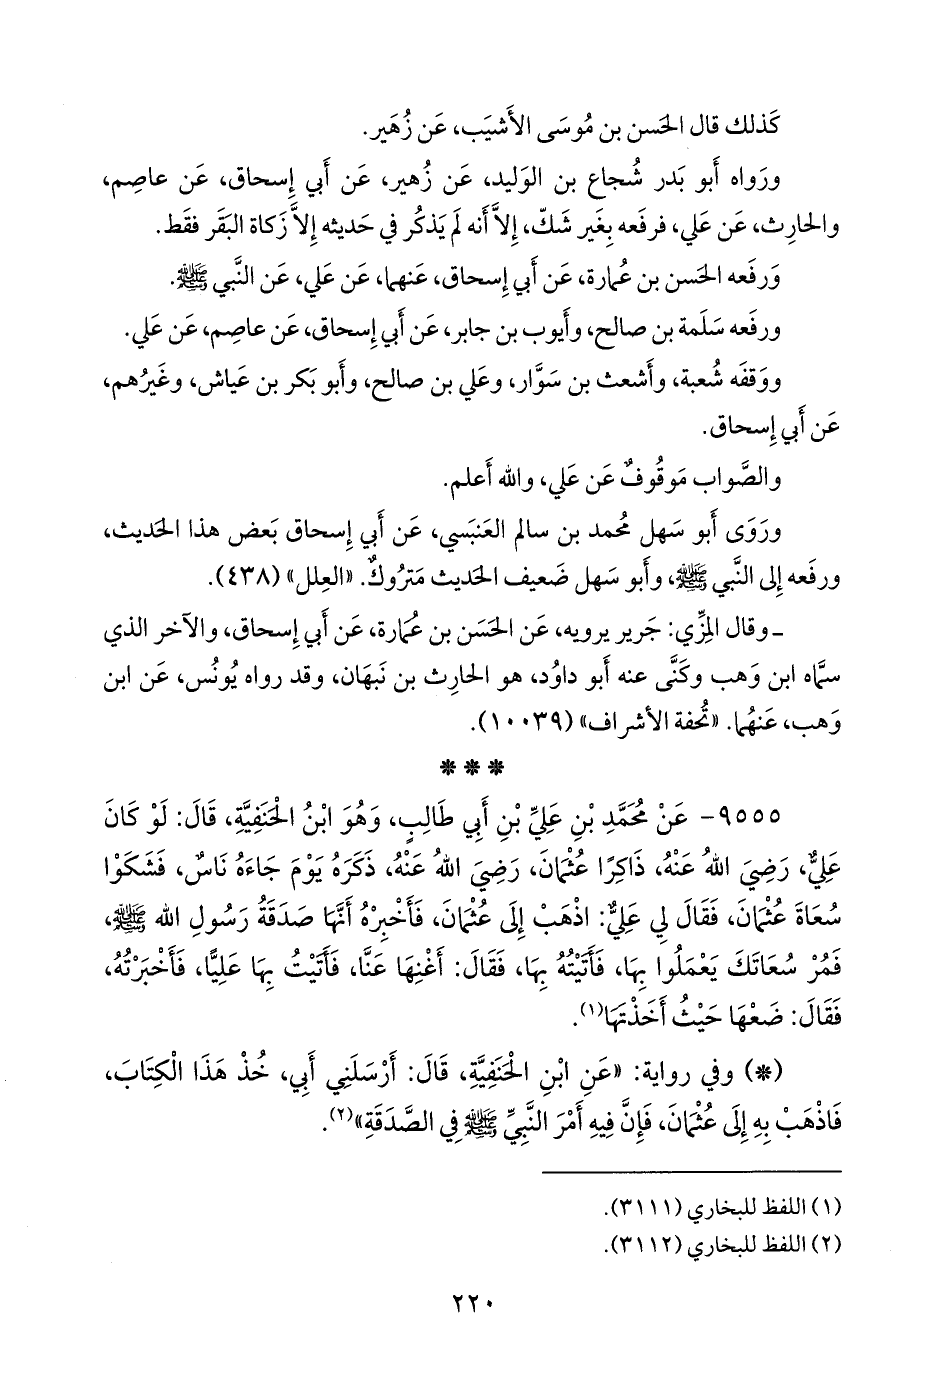 كَذلك قال الحَسن بن مُوسَى الأَشيَب، عَن زُهَير.
ورَواه أَبو بَدر شُجاع بن الوَليد، عَن زُهير، عَن أَبي إِسحاق، عَن عاصِم،
والحارِث، عَن عَلي، فرفَعه بِغَير شَكّ، إِلاَّ أَنه لَم يَذكُر في حَديثه إِلاَّ زَكاة البَقَر فقَط.
وَرفَعه الحَسن بن عُمارة، عَن أَبي إِسحاق، عَنهما، عَن عَلي، عَن النَّبي ﷺ.
ورفَعه سَلَمة بن صالح، وأَيوب بن جابر، عَن أَبي إِسحاق، عَن عاصِم، عَن عَلي.
ووَقفَه شُعبة، وأَشعث بن سَوَّار، وعَلي بن صالح، وأَبو بَكر بن عَياش، وغَيرُهم،
عَن أَبي إِسحاق.
والصَّواب مَوقُوفٌ عَن عَلي، والله أَعلم.
ورَوَى أَبو سَهل مُحمد بن سالم العَنبَسي، عَن أَبي إِسحاق بَعض هذا الحَديث،
ورفَعه إِلى النَّبي ﷺ، وأَبو سَهل ضَعيف الحَديث مَتروكٌ. «العِلل» (٤٣٨).
ـ وقال المِزِّي: جَرير يرويه، عَن الحَسَن بن عُمارة، عَن أَبي إِسحاق، والآخر الذي
سمَّاه ابن وَهب وكَنَّى عنه أَبو داوُد، هو الحارِث بن نَبهَان، وقد رواه يُونُس، عَن ابن
وَهب، عَنهُما. «تُحفة الأشراف» (١٠٠٣٩).
* * *
٩٥٥٥- عَنْ مُحَمَّدِ بْنِ عَلِيِّ بْنِ أَبِي طَالِبٍ، وَهُوَ ابْنُ الْحَنَفِيَّةِ، قَالَ: لَوْ كَانَ
عَلِيٌّ، رَضِيَ اللهُ عَنْهُ، ذَاكِرًا عُثْمَانَ، رَضِيَ اللهُ عَنْهُ، ذَكَرَهُ يَوْمَ جَاءَهُ نَاسٌ، فَشَكَوْا
سُعَاةَ عُثْمَانَ، فَقَالَ لِي عَلِيٌّ: اذْهَبْ إِلَى عُثْمَانَ، فَأَخْبِرْهُ أَنَّهَا صَدَقَةُ رَسُولِ الله ﷺ،
فَمُرْ سُعَاتَكَ يَعْمَلُوا بِهَا، فَأَتَيْتُهُ بِهَا، فَقَالَ: أَغْنِهَا عَنَّا، فَأَتَيْتُ بِهَا عَلِيًّا، فَأَخْبَرْتُهُ،
فَقَالَ: ضَعْهَا حَيْثُ أَخَذْتَهَا(١).
(*) وفي رواية: «عَنِ ابْنِ الْحَنَفِيَّةِ، قَالَ: أَرْسَلَنِي أَبِي، خُذْ هَذَا الْكِتَابَ،
فَاذْهَبْ بِهِ إِلَى عُثْمَانَ، فَإِنَّ فِيهِ أَمْرَ النَّبِيِّ ﷺ فِي الصَّدَقَةِ»(٢).
(١) اللفظ للبخاري (٣١١١).
(٢) اللفظ للبخاري (٣١١٢).
٢٢٠